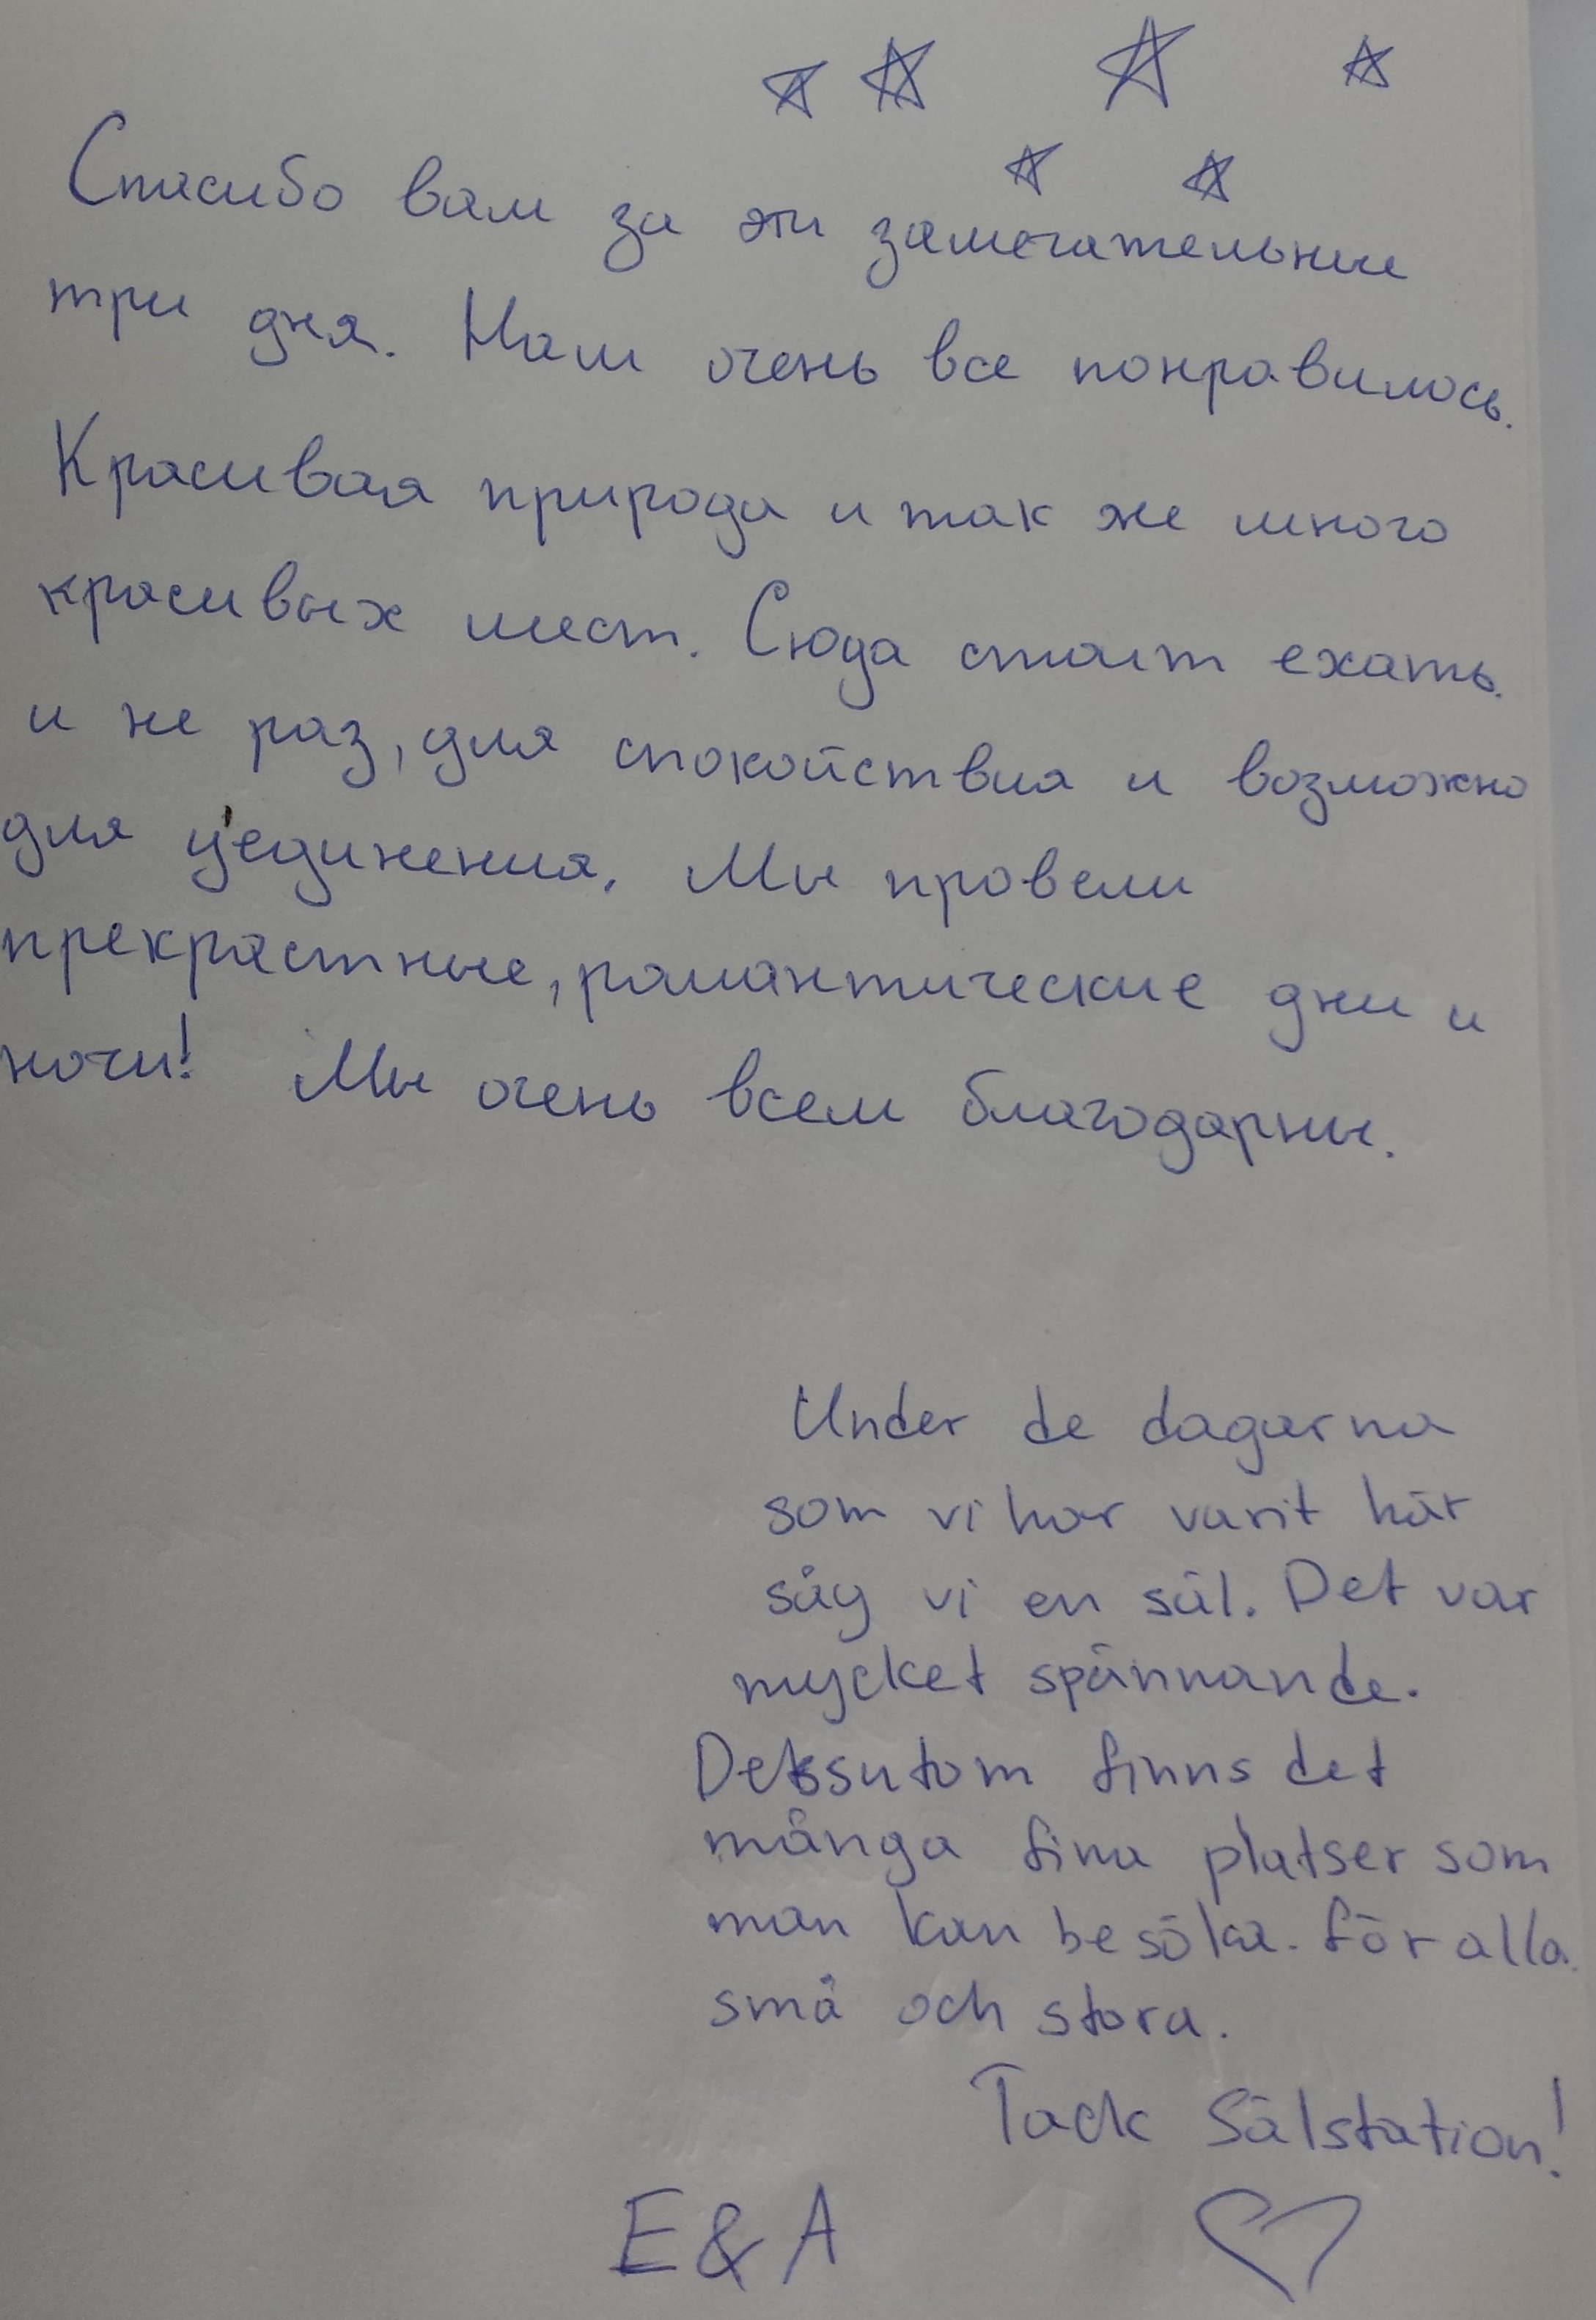 Спасибо вам за эти замечательные
три дня. Нам очень все понравилось.
Красивая природа и так же много
красивых мест. Сюда стоит ехать
и не раз, для спокойствия и возможно
для уединения. Мы провели
прекрастные, романтические дни и
ночи! Мы очень всем благодарны.
Under de dagarna
som vi har varit här
såg vi en säl. Det var
mycket spännande.
Detssutom finns det
många fina platser som
man kan besöka. för alla
små och stora.
Tack Sälstation!
E & A